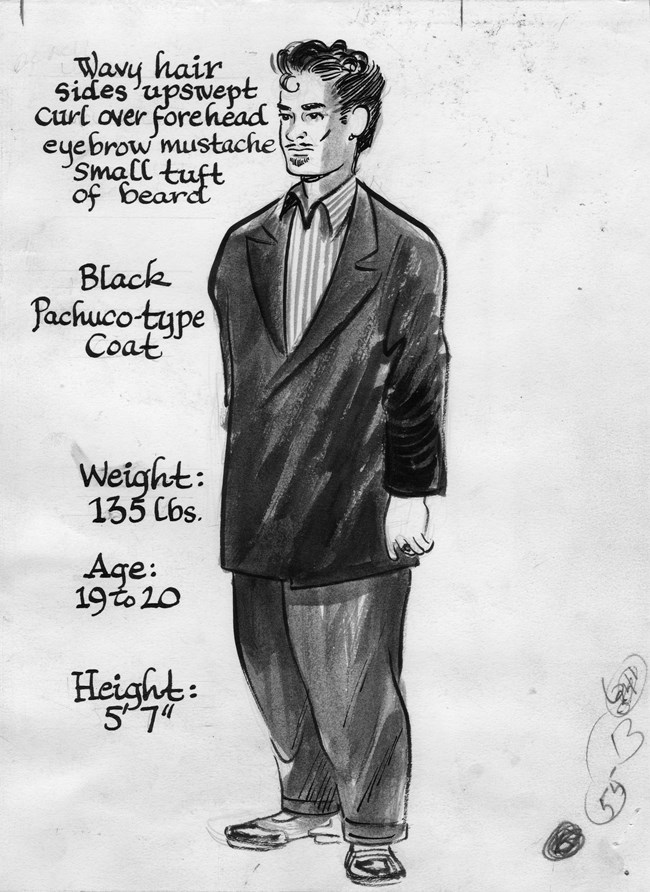 Wavy hair
sides upswept
Curl over forehead
eyebrow mustache
small tuft
of beard
Black
Pachuco-type
Coat
Weight:
135 lbs.
Age:
19 to 20
Height:
5' 7"
B
55